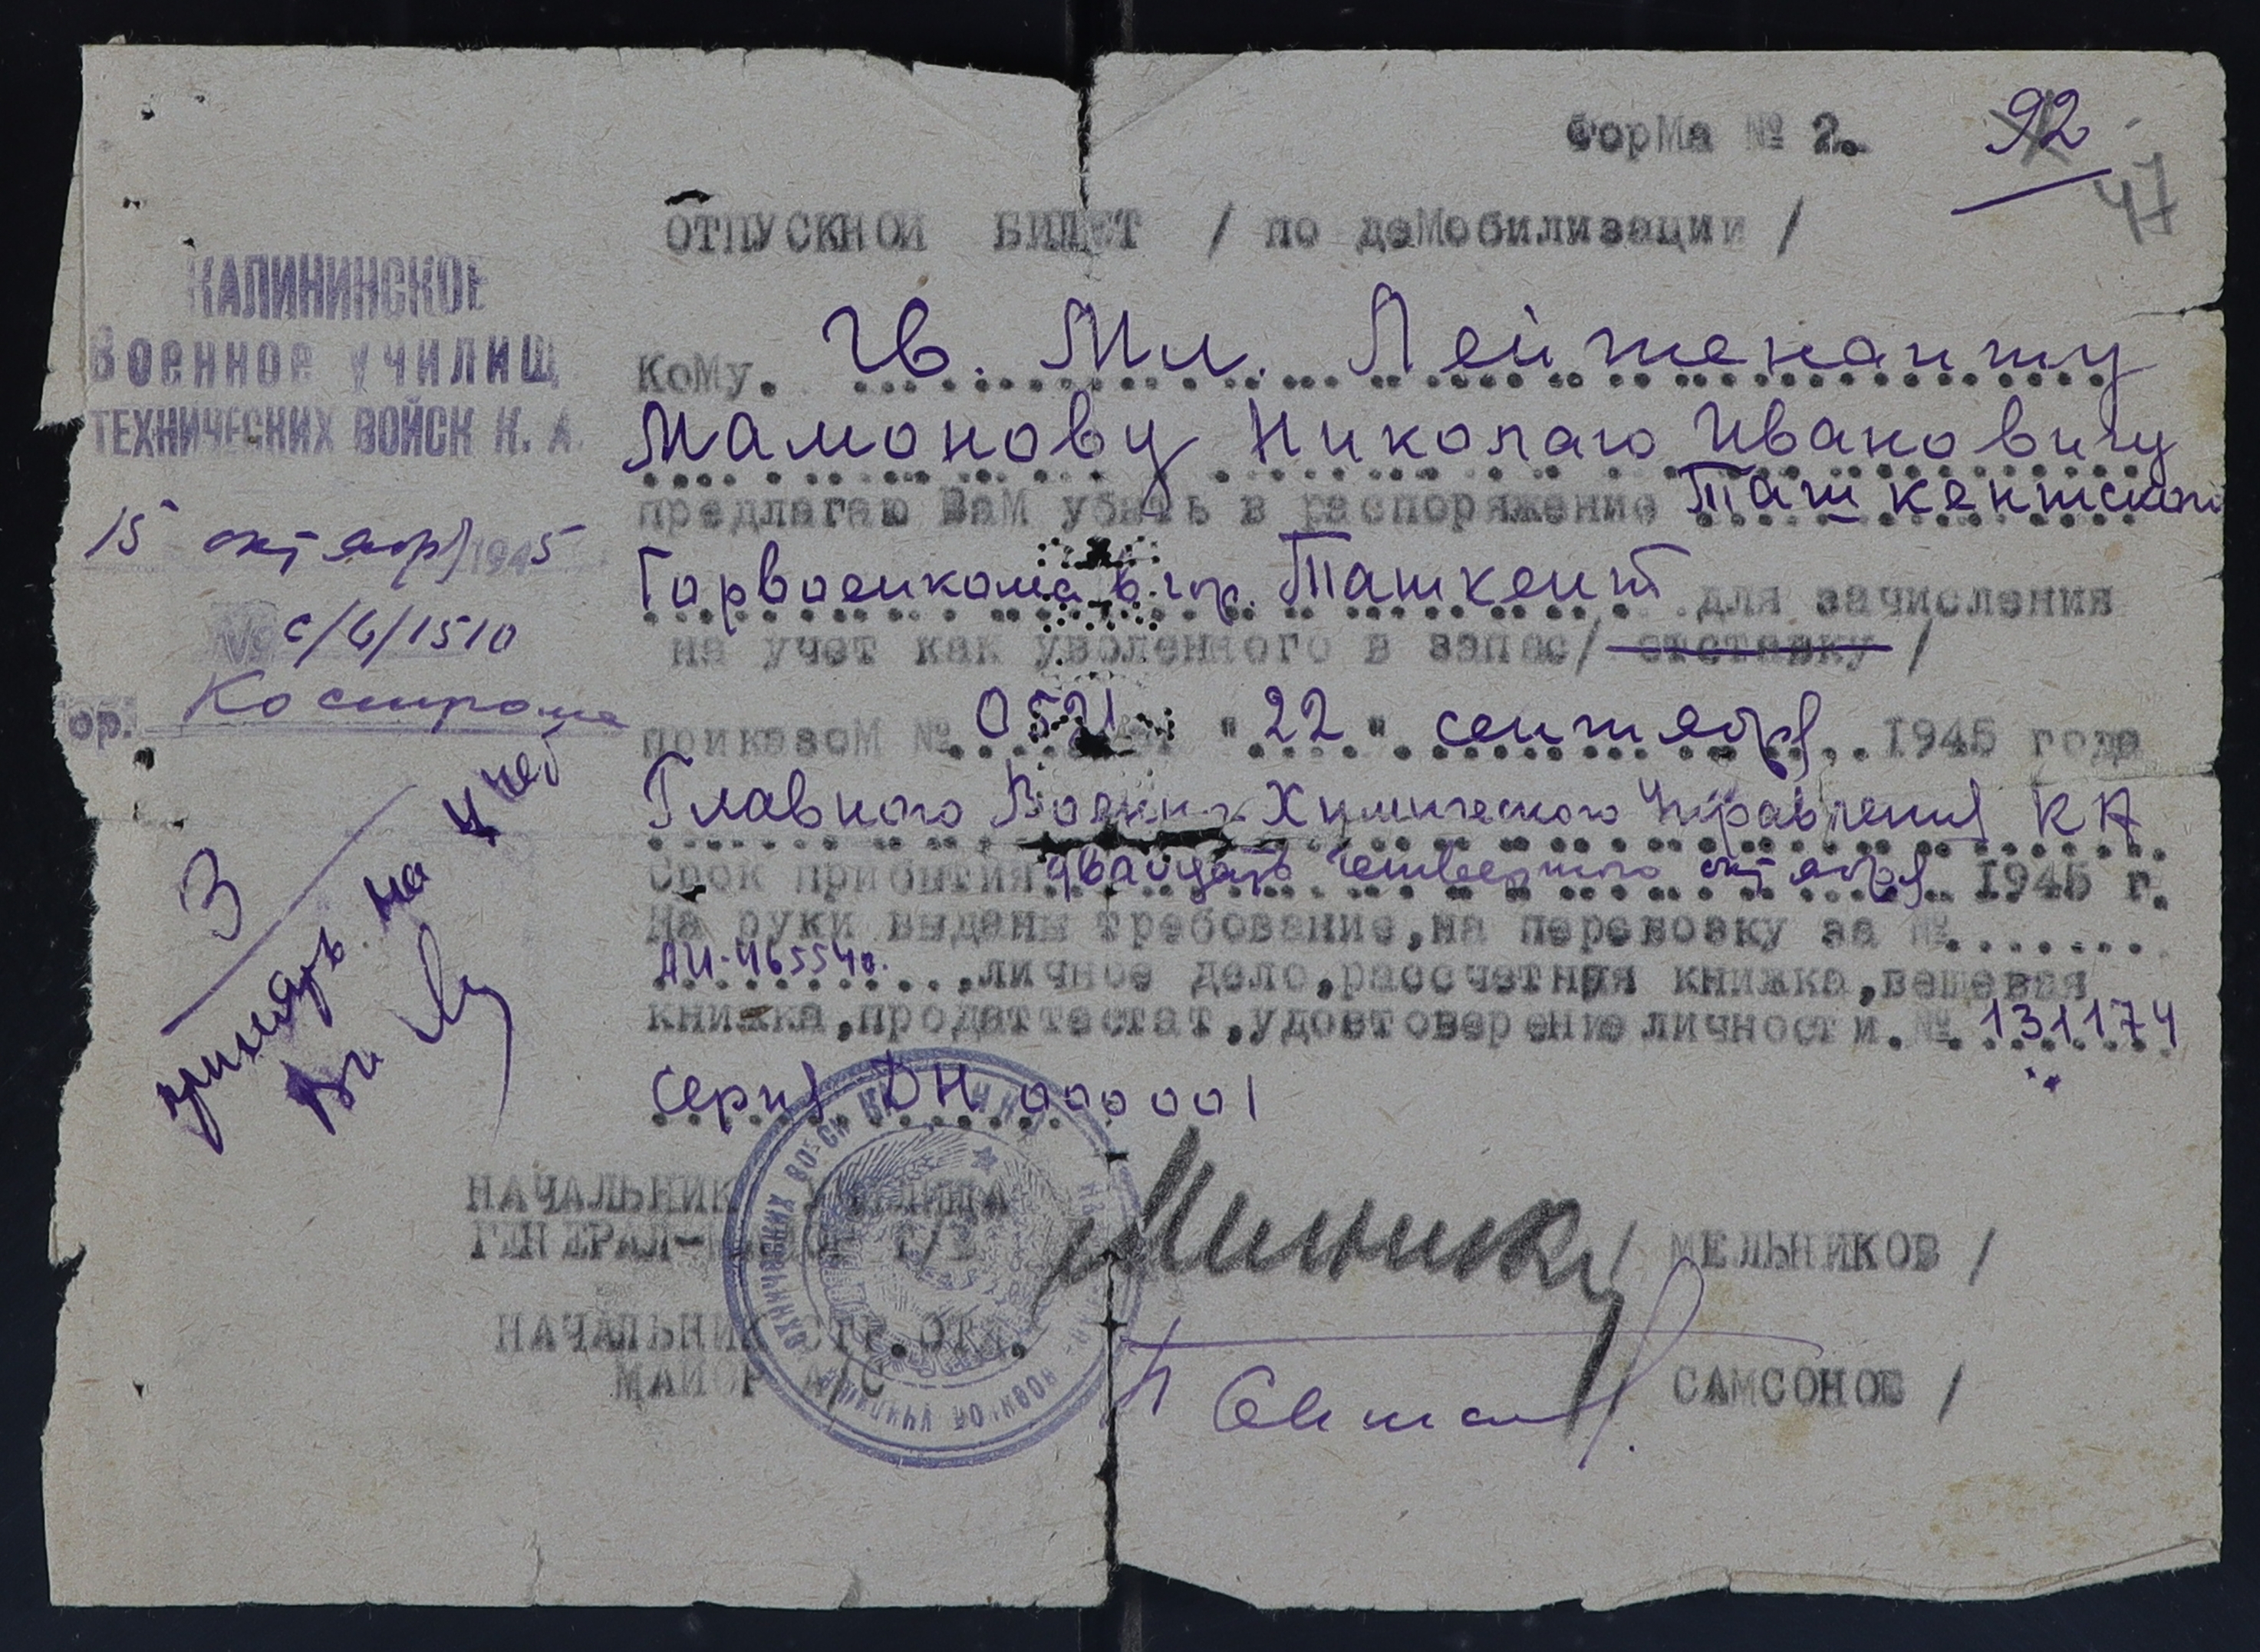 ФорМа № 2.
92
47
ОТПУСКНОЙ БИЛЕТ / по деМобилизации /
КАЛИНИНСКОЕ
Военное училищ
ТЕХНИЧЕСКИХ ВОЙСК К. А.
15 октября 1945
№ с/б/1510
ор. Кострома
КоМу. Гв. Мл. Лейтенанту
Мамонову Николаю Ивановичу
предлагаю ВаМ убыть в распоряжение Ташкентского
Горвоенкома в гор. Ташкент для зачисления
на учет как уволенного в запас/ отставку /
приказоМ № 0521 от "22" сентября 1945 года
Главного Военно-Химического Управления КА
Срок прибытия двадцать четвертого октября 1945 г.
На руки выданы требование,на перевозку за №
АИ-465540. ,личное дело,рассчетная книжка,вещевая
книжка,продаттестат,удостоверение личности. № 131174
серия ДН 000001
3
принять на учет
НАЧАЛЬНИК УЧИЛИЩА
ГЕНЕРАЛ-МАЙОР Т/В / МЕЛЬНИКОВ /
НАЧАЛЬНИК СТР.ОТД.
МАЙОР А/С / САМСОНОВ /